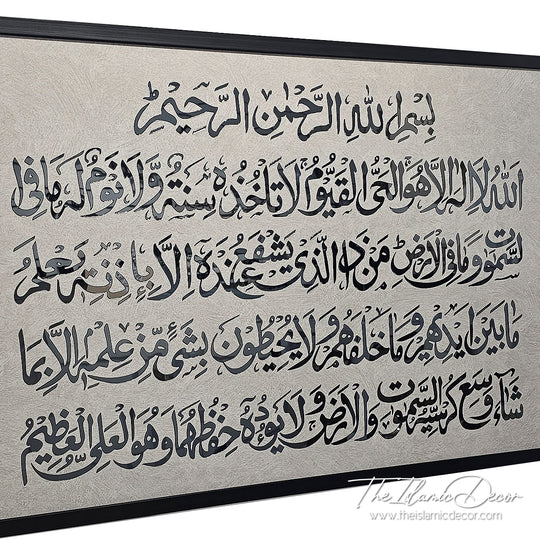 بسم الله الرحمن الرحيم
الله لا اله الا هو الحي القيوم لا تاخذه سنة ولا نوم له ما في ا
لسموت وما في الارض من ذا الذي يشفع عنده الا باذنه يعلم
ما بين ايديهم وما خلفهم ولا يحيطون بشئ من علمه الا بما
شاء وسع كرسيه السموت والارض ولا يوده حفظهما وهو العلي العظيم
The Islamic Decor
www.theislamicdecor.com